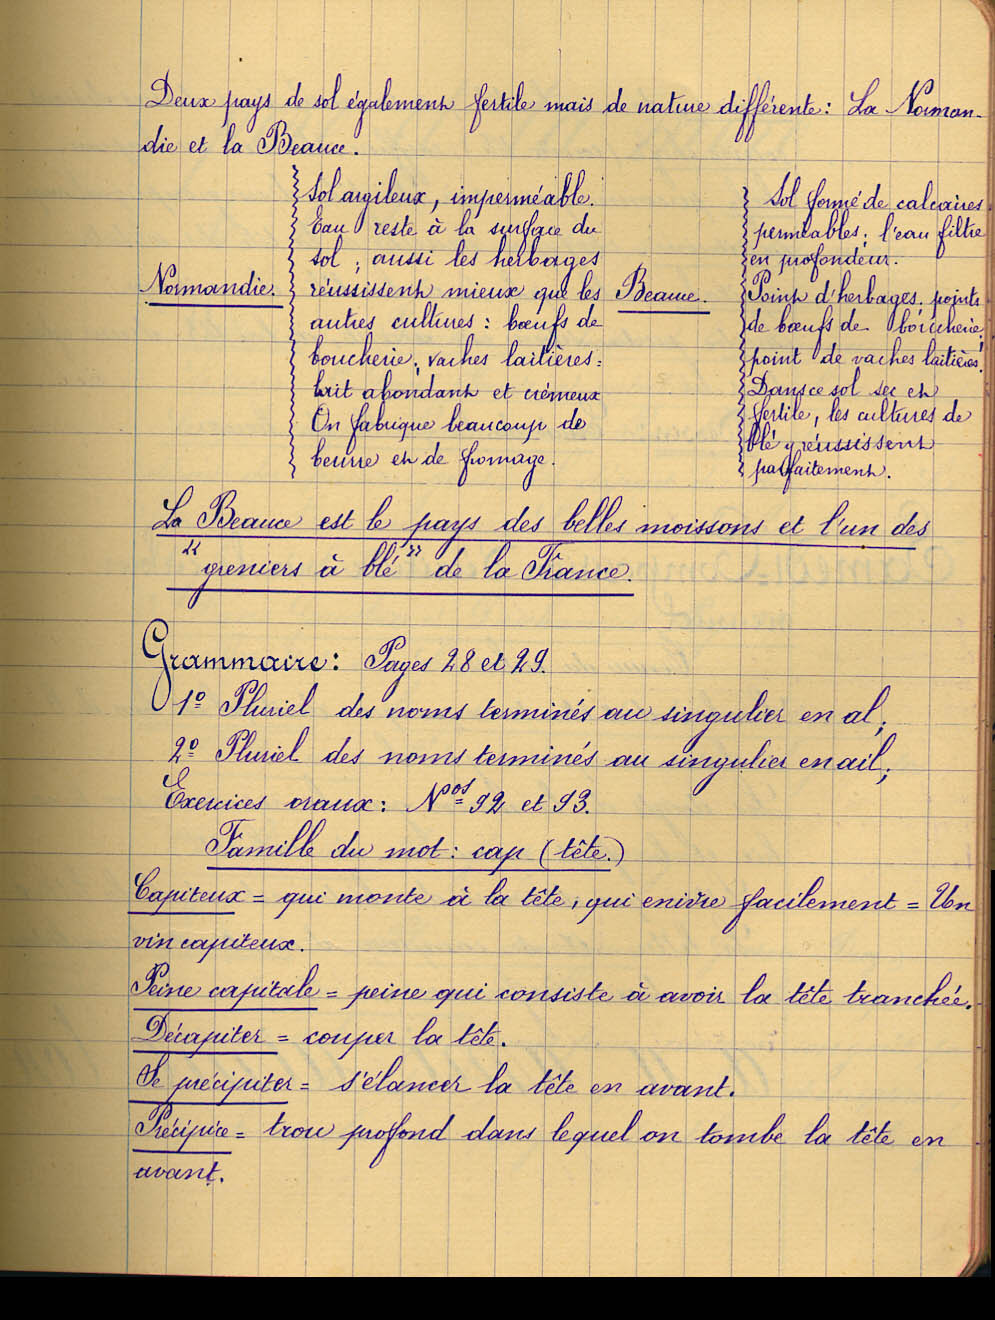 Deux pays de sol également fertile mais de nature différente : La Norman-
die et la Beauce.
Normandie.
Sol argileux, imperméable.
Eau reste à la surface du
sol ; aussi les herbages
réussissent mieux que les
autres cultures : bœufs de
boucherie, vaches laitières :
lait abondant et crémeux
On fabrique beaucoup de
beurre et de fromage.
Beauce.
Sol formé de calcaires
perméables ; l'eau filtre
en profondeur.
Point d'herbages. points
de bœufs de boucherie,
point de vaches laitières.
Dans ce sol sec et
fertile, les cultures de
blé y réussissent
parfaitement.
La Beauce est le pays des belles moissons et l'un des
"greniers à blé" de la France.
Grammaire : Pages 28 et 29.
1º Pluriel des noms terminés au singulier en al ;
2º Pluriel des noms terminés au singulier en ail ;
Exercices oraux : Nos 92 et 93.
Famille du mot : cap (tête.)
Capiteux = qui monte à la tête, qui enivre facilement = Un
vin capiteux.
Peine capitale = peine qui consiste à avoir la tête tranchée.
Décapiter = couper la tête.
Se précipiter = s'élancer la tête en avant.
Précipice = trou profond dans lequel on tombe la tête en
avant.